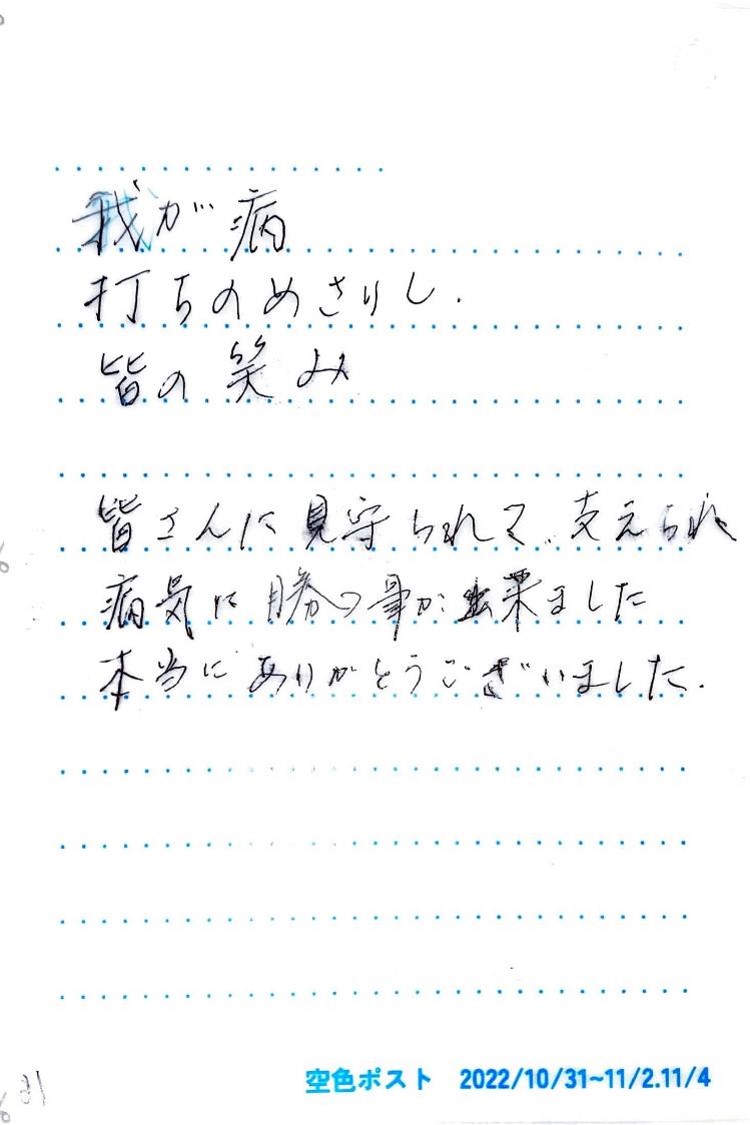 我が病
打ちのめさりし.
皆の笑み
皆さんに見守られて、支えられ
病気に勝つ事が出来ました
本当にありがとうございました.
空色ポスト 2022/10/31~11/2.11/4